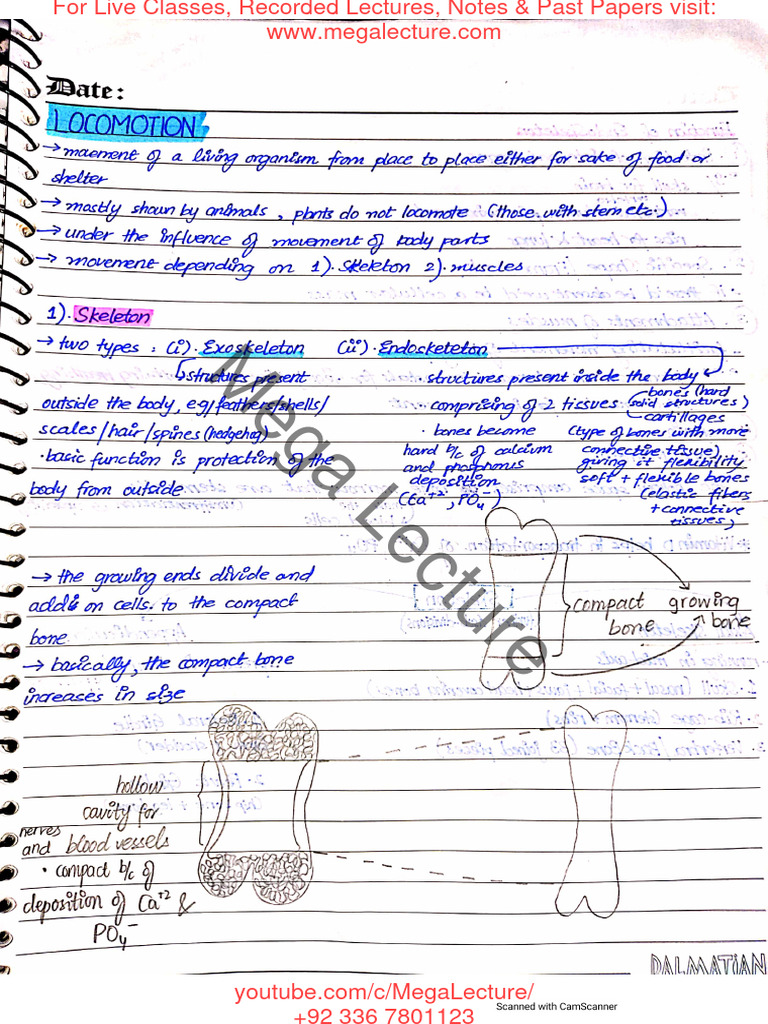 For Live Classes, Recorded Lectures, Notes & Past Papers visit:
www.megalecture.com
Date:
LOCOMOTION
→ maement of a living organism from place to place either for sake of food or
shelter
→ mostly shown by animals, plants do not locomote (those with stem etc.)
→ under the influence of movement of body parts
→ movement depending on 1). Skeleton 2). muscles
1). Skeleton
→ two types: (i). Exoskeleton (ii). Endoskeleton
structures present
outside the body, e.g/feathers/shells/
scales/hair/spines (hedgehog)
· basic function is protection of the
body from outside
· structures present inside the body
· comprising of 2 tissues
bones (hard
solid structures)
cartillages
· bones become
hard b/c of calcium
and phosphorus
deposition
(Ca+2, PO4-)
(type of bones with more
connective tissue)
giving it flexibility
soft + flexible bones
(elastic fibers
+ connective
tissues)
→ the growing ends divide and
adds on cells. to the compact
bone
→ basically, the compact bone
increases in size
compact
bone
growing
bone
hollow
cavity for
nerves
and blood vessels
· compact b/c of
deposition of Ca+2 &
PO4-
Mega Lecture
DALMATIAN
youtube.com/c/MegaLecture/
+92 336 7801123
Scanned with CamScanner